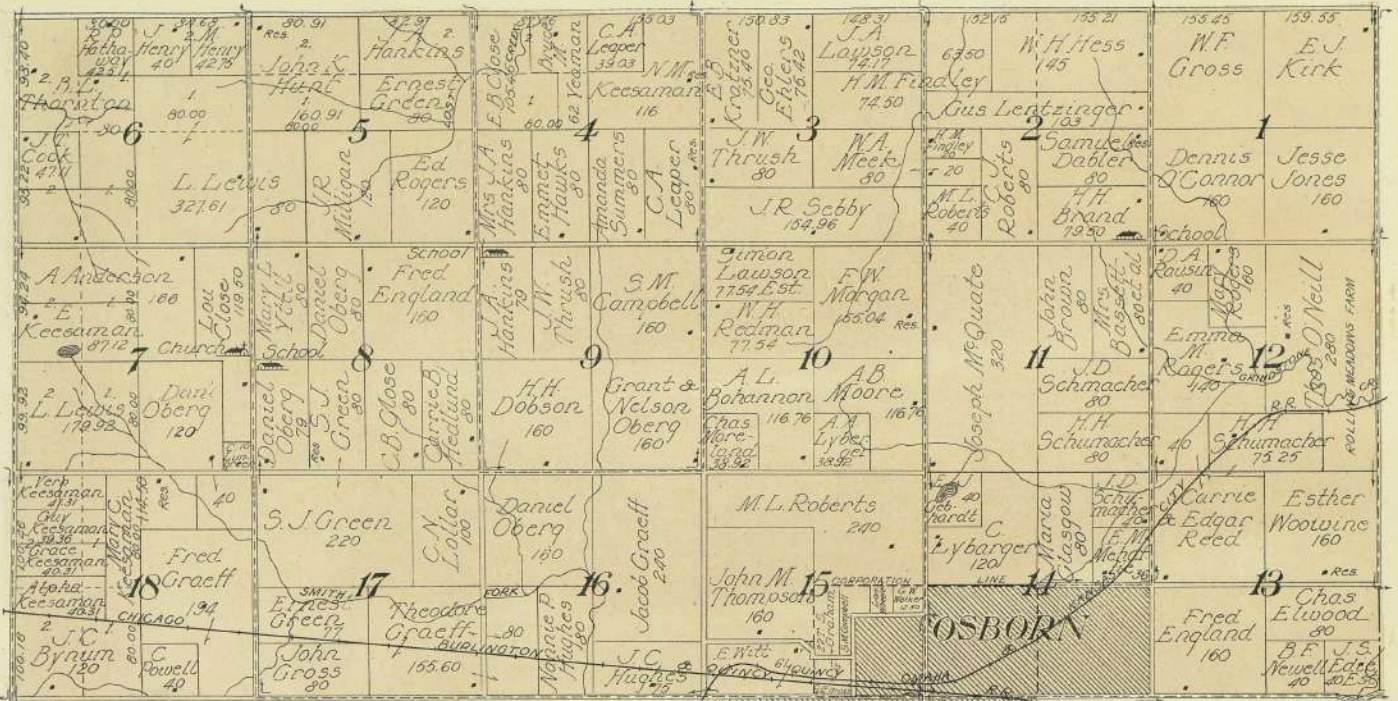 R.L.
Thornton
P.P.
Hatha-
way
42.51
J
Henry
40
M.
Henry
42.75
J.
Cook
47.11
L. Lewis
327.61
6
93.40
93.22
80.00
80.91
Res.
John K.
Hunt
160.91
J.A.
Hankins
Ernest
Green
80
V.R.
Milligan
120
Ed
Rogers
120
80
5
E.B. Close
62 Yeaman
60.00
C.A.
Leaper
39.03
N.M. Res.
Keesaman
116
4
Mrs J.A.
Hankins
80
Emmet
Hawks
80
Amanda
Summers
80
C.A.
Leaper
80
Res.
150.83
148.31
E.B.
Kratzner
75.40
Geo.
Ehlers
75.42
J.A.
Lawson
74.17
H.M. Findley
74.50
3
J.W.
Thrush
80
W.A.
Meek
80
J.R. Sebby
154.96
152.15
155.21
63.50
W.H. Hess
145
Gus Lentzinger
103
2
H.M.
Findley
20
20
M.L.
Roberts
40
C.J.
Roberts
Samuel Res
Dabler
80
H.H.
Brand
79.50
155.45
159.55
W.F.
Gross
E.J.
Kirk
1
Dennis
O'Connor
160
Jesse
Jones
160
School
94.24
A. Anderson
166
E.
Keesaman
87.12
Lou
Close
119.50
Church
7
99.93
L. Lewis
179.98
80.00
Dan'l
Oberg
120
Mary L.
Daniel
Oberg
80
School
Fred
England
160
School
8
Daniel
Oberg
79
Res
S.J.
Green
80
C.B. Close
80
Carrie B.
Hedlund
80
J.A.
Hankins
79
J.W.
Thrush
80
S.M.
Campbell
160
9
H.H.
Dobson
160
Grant &
Nelson
Oberg
160
Simon
Lawson
77.54 Est.
W.H.
Redman
77.54
F.W.
Morgan
155.04
Res.
10
A.L.
Bohannon
116.76
A.B.
Moore
116.76
Chas
More-
land
38.92
A.A.
Lyber
ger
38.92
Joseph McQuate
320
John
Brown
80
Mrs.
Bassett
80 et al
11
J.D.
Schmacher
80
H.H.
Schumacher
80
D.A.
Rausin
40
Mary
Rogers
160
Emma
M.
Rogers
140
12
Thos O'Neill
280
Res
ROLLING MEADOWS FARM
GRINDSTONE
CR.
R.R.
40
H.H.
Schumacher
75.25
Vern
Keesaman
41.31
Guy
Keesaman
39.36
Grace
Keesaman
40.31
Alpha
Keesaman
40.31
Mary C.
Keesaman
114.50
Res.
40
Fred
Graeff
194
18
J.C.
Bynum
120
C
Powell
40
CHICAGO
S.J. Green
220
C.N.
Lollar
100
17
SMITH
Ernest
Green
77
John
Gross
80
Theodore
Graeff
155.60
BURLINGTON
Daniel
Oberg
160
Jacob Graeff
240
16
FORK
80
Nannie P.
Hughes
80
J.C.
Hughes
175
&
M.L. Roberts
240
John M.
Thompson
160
15
CORPORATION
LINE
S.
Graham
S.M. Campbell
E. Witt
61
QUINCY
QUINCY
OMAHA
R.R.
E.J.
Geb-
hardt
40
C
Lybarger
120
Maria
Glasgow
80
J.D.
Schu-
macher
40
E.M.
Mehaff
36
14
OSBORN
KANSAS CITY &
Carrie
&
Edgar
Reed
Esther
Woowine
160
Res.
13
Fred
England
160
Chas
Elwood
80
B.F.
Newell
40
J.S.
Edee
40 Est